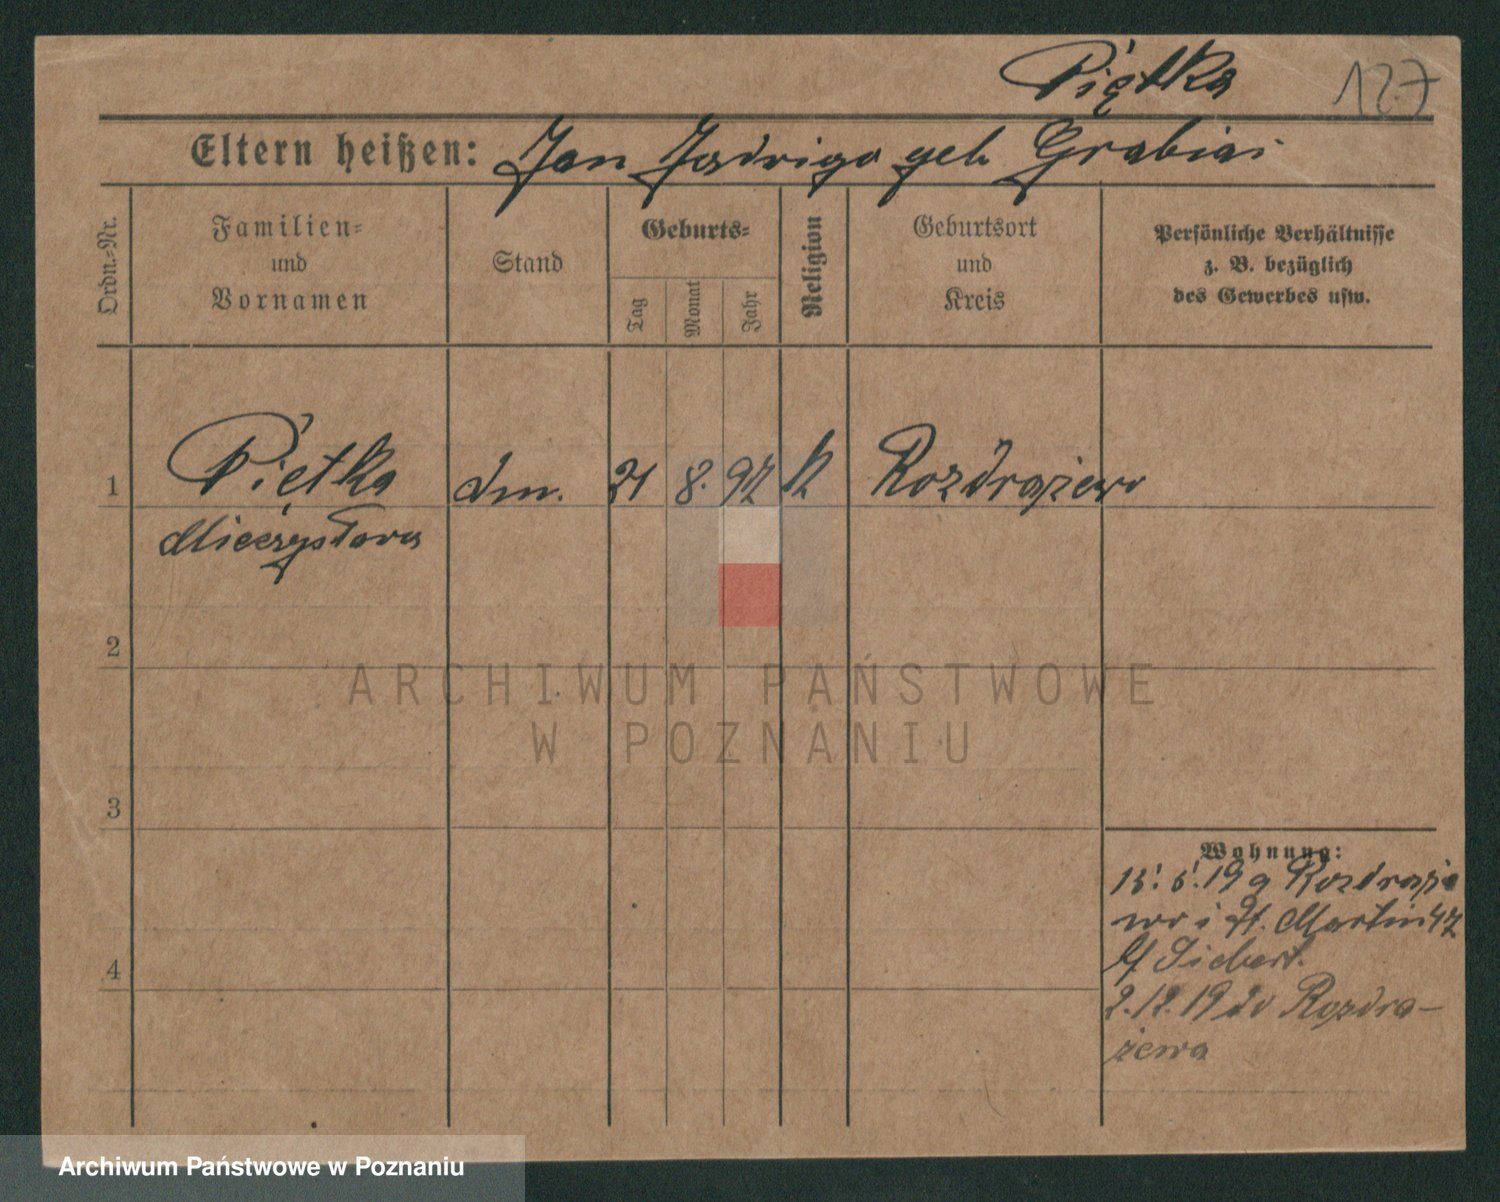 Piętka 127
Eltern heißen: Jan Jadwiga geb Grabiai
Ordn.-Nr.
Familien-
und
Vornamen
Stand
Geburts-
Tag
Monat
Jahr
Religion
Geburtsort
und
Kreis
Persönliche Verhältnisse
z. B. bezüglich
des Gewerbes usw.
1 Piętka dm. 21 8. 97 k Rozdrażewo
Mieczysława
2
ARCHIWUM PAŃSTWOWE
W POZNANIU
3
Wohnung:
15. 5. 19 a Rozdraże
wo i St. Martin 47
b/ Siebert.
4
2. 12. 19 do Rozdra-
żewa
Archiwum Państwowe w Poznaniu